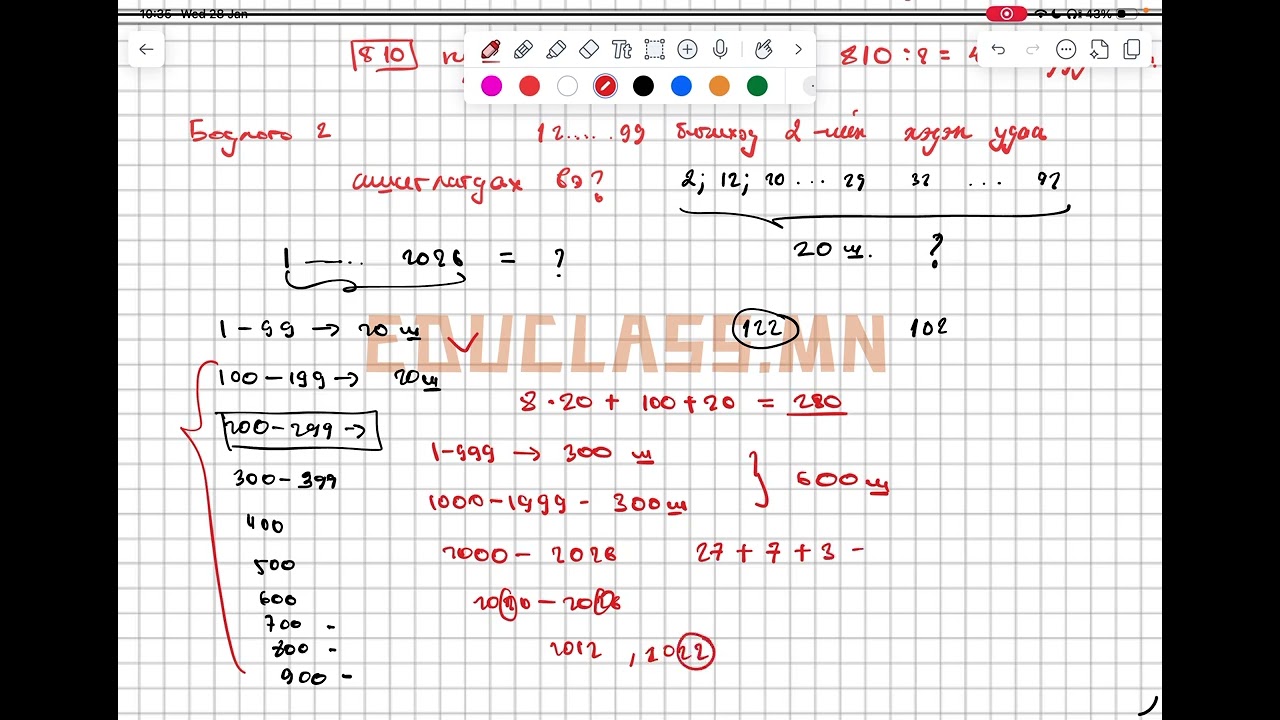 19:35 Wed 28 Jan 43%
810 810 : 2 = 4
Tt
Бодлого 2 1 2 ..... 99 бичихэд 2-ийг хэдэн удаа
ашиглагдах вэ? 2; 12; 20 ... 29 32 ... 92
20 ш. ?
1 —.. 2026 = ?
1 - 99 → 20 ш 122 102
EDUCLASS.MN
100 - 199 → 20ш
8 · 20 + 100 + 20 = 280
200 - 299 →
1-999 → 300 ш
300 - 399 600 ш
1000 - 1999 - 300 ш
400
2000 - 2026 27 + 7 + 3 -
500
600 2020 - 2026
700 -
800 - 2012 , 2022
900 -